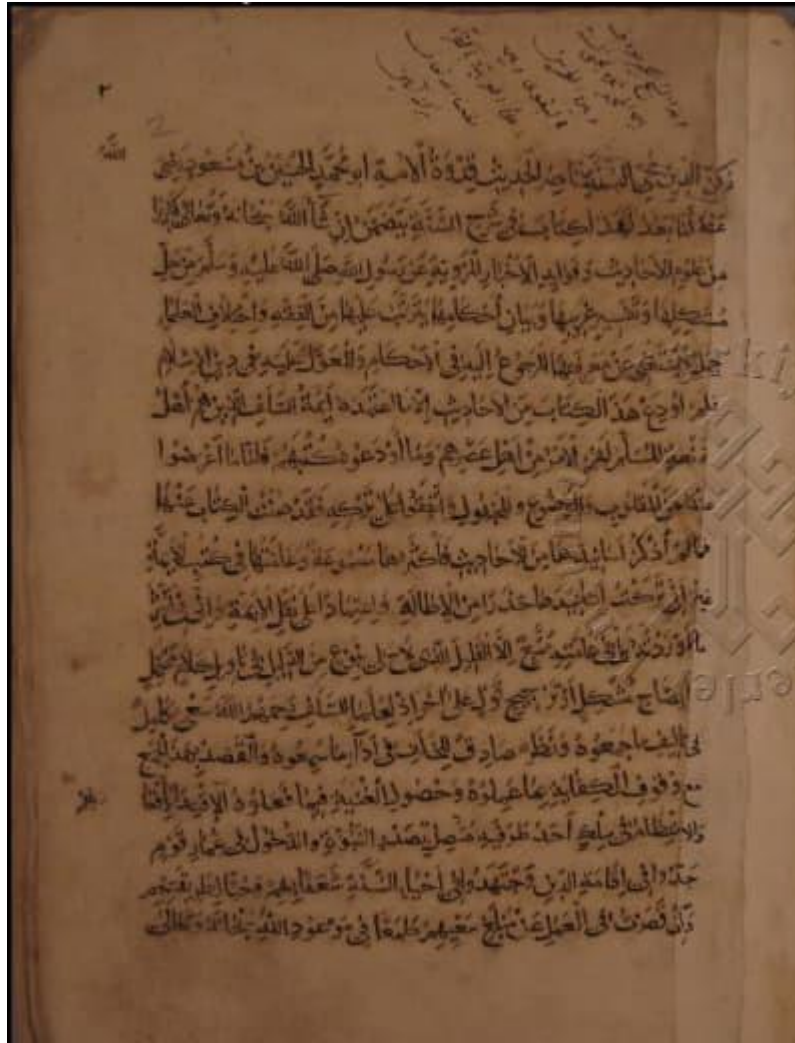 ٢
الله
ركن الدين محيي السنة ناصر الحديث قدوة الأمة أبو محمد الحسين بن مسعود رضي
عنه أما بعد فهذا كتاب في شرح السنة يتضمن إن شاء الله سبحانه وتعالى كثيرا
من علوم الأحاديث وفوائد الأخبار المروية عن رسول الله صلى الله عليه وسلم من حل
مشكلها وتفسير غريبها وبيان أحكامها يترتب عليها من الفقه واختلاف العلماء
جمل لا يستغنى عن معرفتها المرجوع إليه في الأحكام والمعول عليه في دين الإسلام
ولم أودع هذا الكتاب من الأحاديث إلا ما اعتمده أئمة السلف الذين هم أهل
الصنعة المسلم لهم الأمر من أهل عصرهم وما أودعوه كتبهم فأما ما أعرضوا
عنه من المقلوب والموضوع والمجهول واتفقوا على تركه فقد صنت الكتاب عنها
وما لم أذكر أسانيدها من الأحاديث فأكثرها مسموعة وعامتها في كتب الأئمة
غير أني تركت أسانيدها حذرا من الإطالة واعتمادا على نقل الأئمة وإني في أكثر
ما أوردته بل في عامته متبع إلا القليل الذي لاح لي بنوع من الدليل في تأويل كلام محتمل
أو إيضاح مشكل أو ترجيح قول على آخر إذ لعلماء السلف رحمهم الله سعي كامل
في تأليف ما جمعوه ونظر صادق للخلف في أداء ما سمعوه والقصد بهذا الجمع
مع وقوع الكفاية بما عملوه وحصول الغنية فيما فعلوه الاقتداء بأفعالهم
والانتظام في سلك أحد طرفيه متصل بصدر النبوة والدخول في غمار قوم
جدوا في إقامة الدين واجتهدوا في إحياء السنة شغفا بهم وحبا لطريقتهم
وإن قصرت في العمل عن مبلغ سعيهم طمعا في موعود الله سبحانه وتعالى